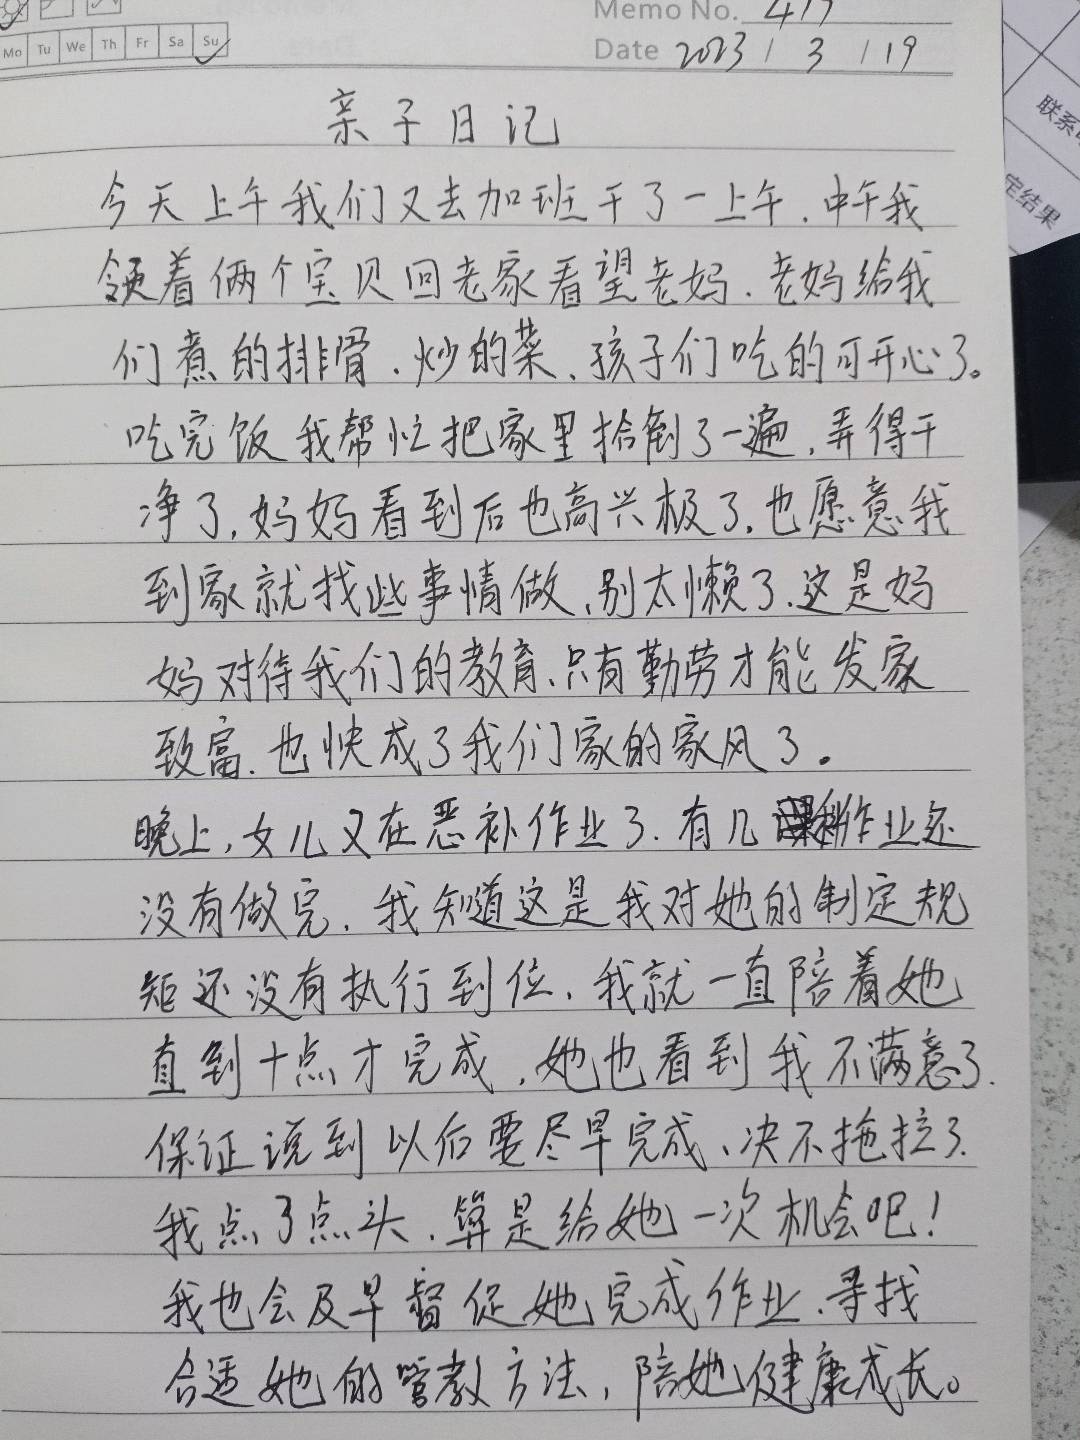 Memo No. 417
Mo Tu We Th Fr Sa Su
Date 2023 / 3 / 19
亲子日记
今天上午我们又去加班干了一上午.中午我
领着俩个宝贝回老家看望老妈.老妈给我
们煮的排骨.炒的菜、孩子们吃的可开心了。
吃完饭我帮忙把家里拾倒了一遍,弄得干
净了,妈妈看到后也高兴极了,也愿意我
到家就找些事情做,别太懒了.这是妈
妈对待我们的教育、只有勤劳才能发家
致富.也快成了我们家的家风了。
晚上,女儿又在恶补作业了.有几作业还
没有做完.我知道这是我对她的制定规
矩还没有执行到位、我就一直陪着她
直到十点才完成,她也看到我不满意了.
保证说到以后要尽早完成、决不拖拉了.
我点了点头.算是给她一次机会吧!
我也会及早督促她完成作业.寻找
合适她的管教方法,陪她健康成长。
联系
定结果